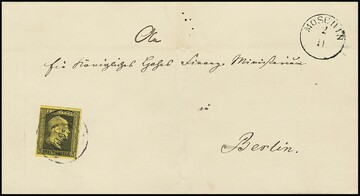 MOSCHIN
2
11
An
Ein Königliches Hohes Finanz Ministerium
in
Berlin.